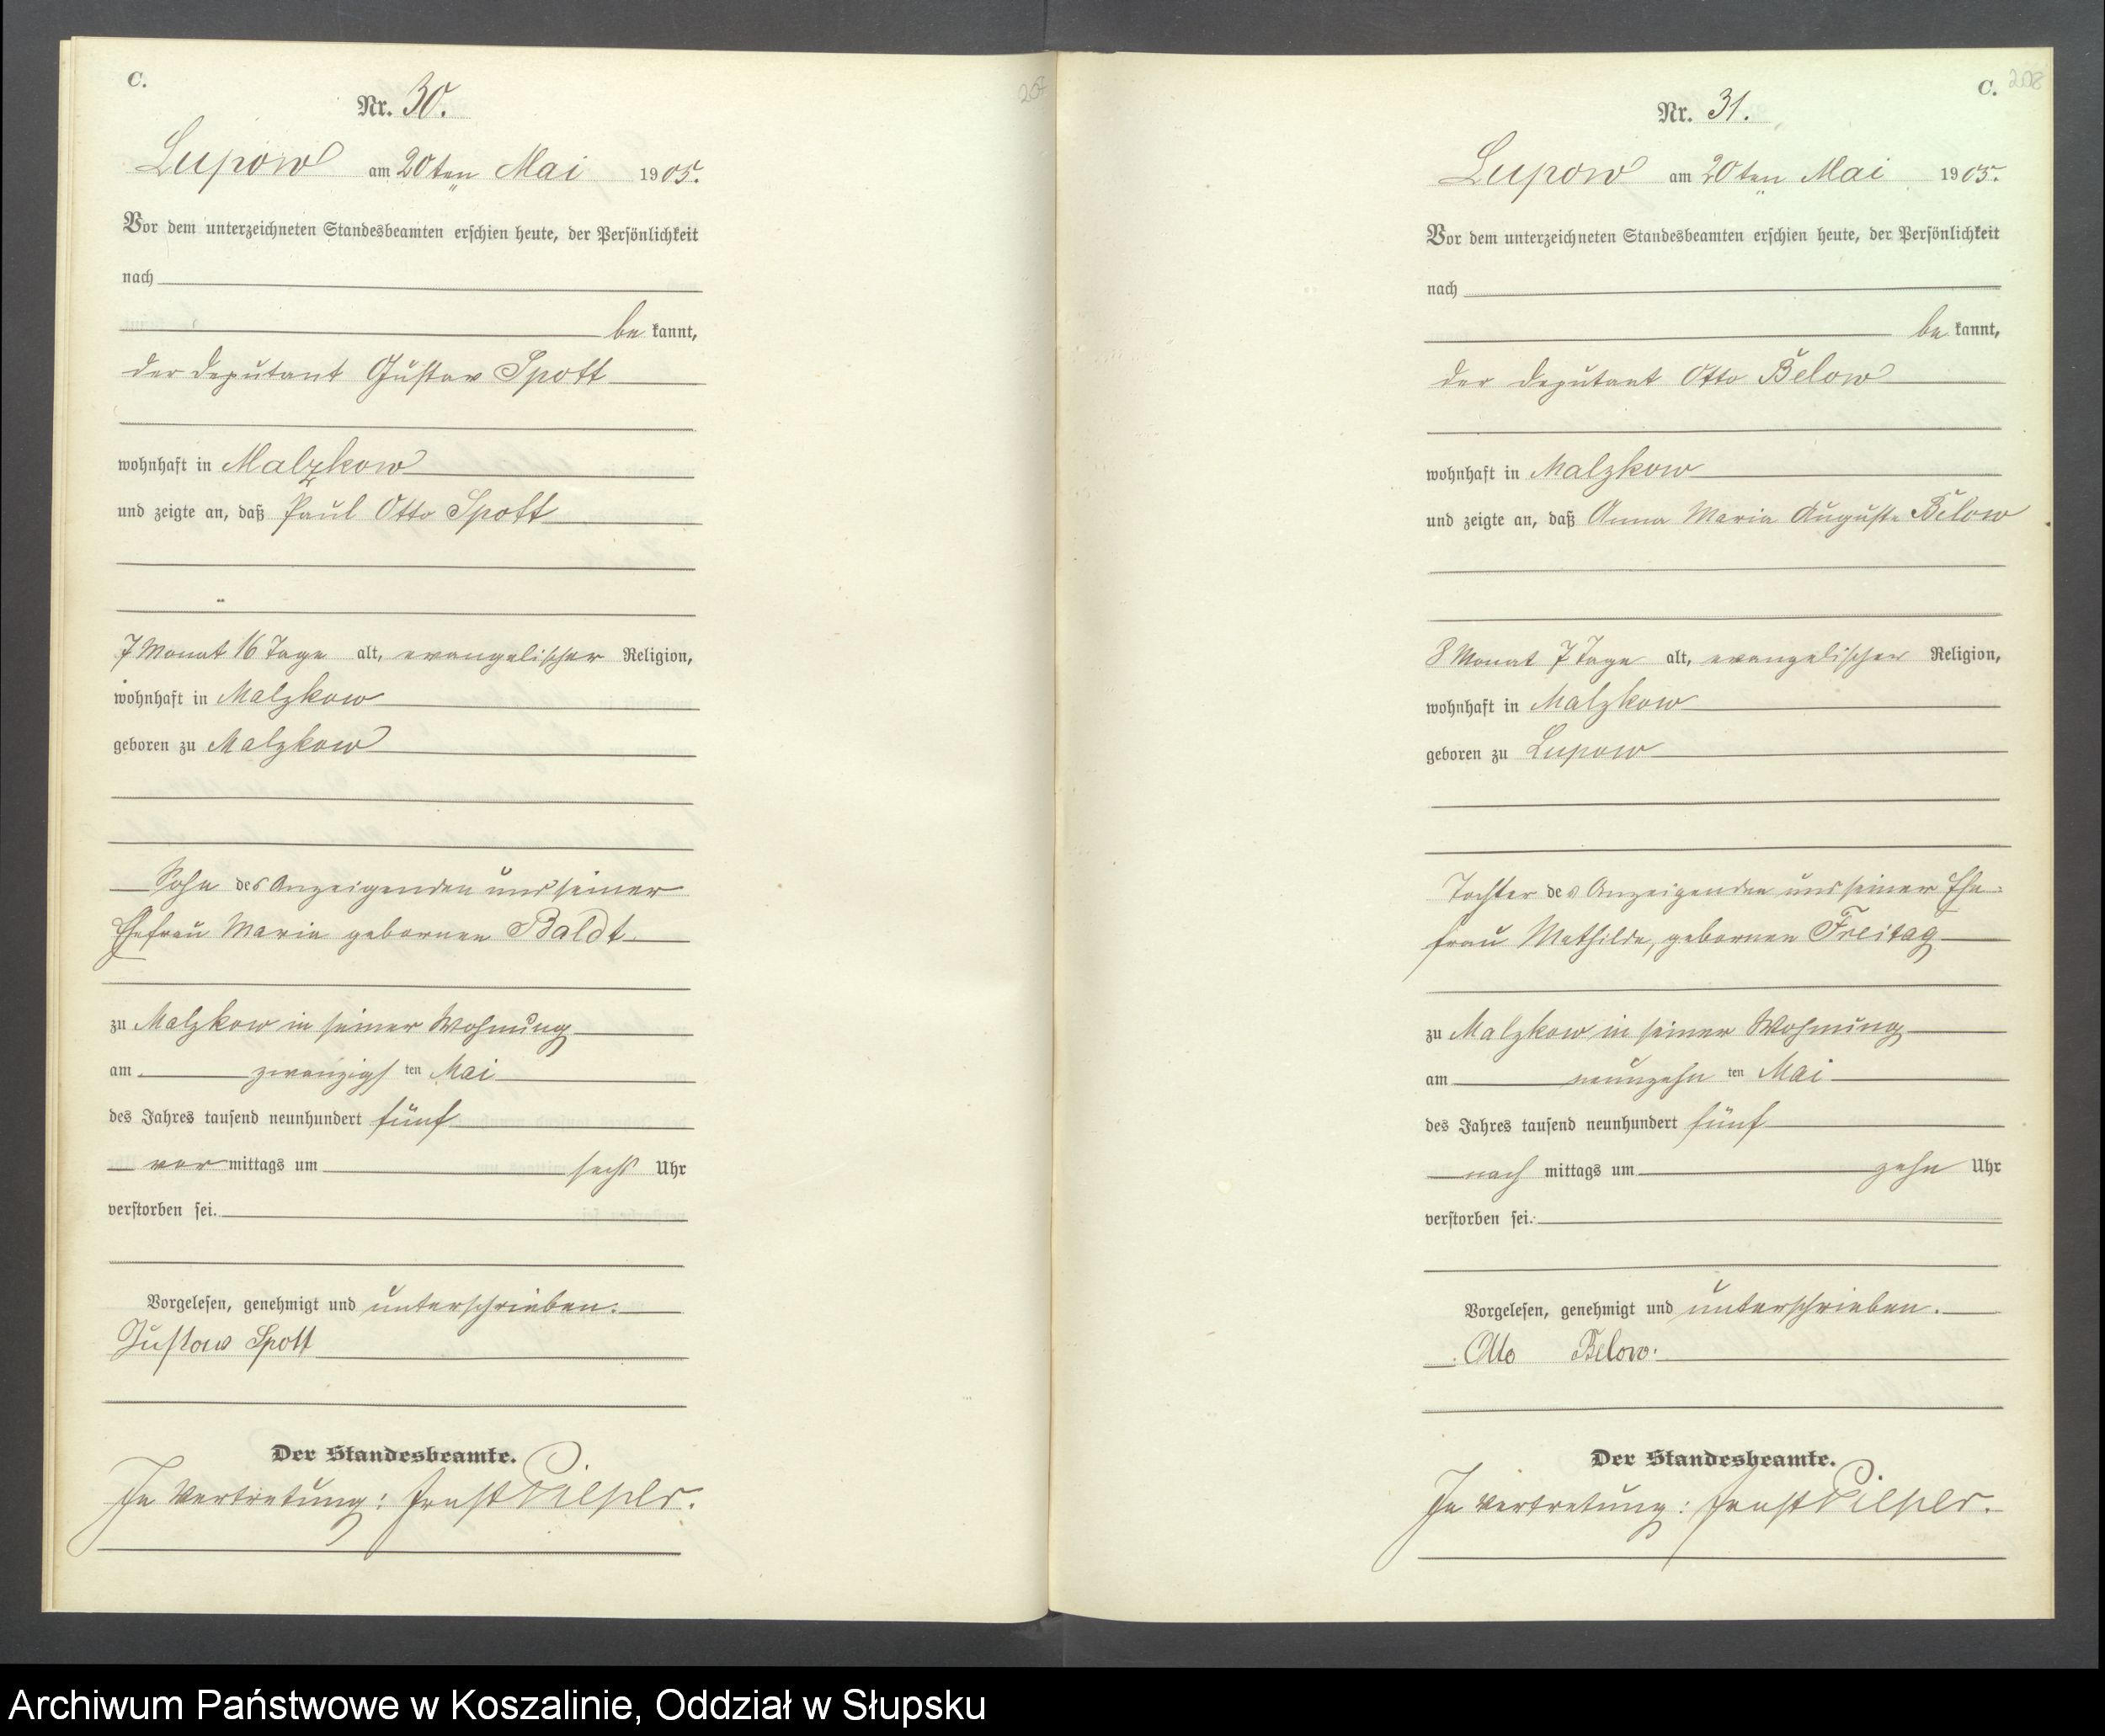 C.
Nr. 30.
Lupow am 20ten Mai 1905.
Vor dem unterzeichneten Standesbeamten erschien heute, der Persönlichkeit
nach
be kannt,
der Deputant Gustav Spott
wohnhaft in Malzkow
und zeigte an, daß Paul Otto Spott
7 Monat 16 Tage alt, evangelischer Religion,
wohnhaft in Malzkow
geboren zu Malzkow
Sohn des Anzeigenden und seiner
Ehefrau Maria gebornen Baldt
zu Malzkow in seiner Wohnung
am zwanzigsten Mai
des Jahres tausend neunhundert fünf
vor mittags um sechs Uhr
verstorben sei.
Vorgelesen, genehmigt und unterschrieben.
Gustav Spott
Der Standesbeamte.
In Vertretung: Ernst Piepler.
C. 208
Nr. 31.
Lupow am 20ten Mai 1905.
Vor dem unterzeichneten Standesbeamten erschien heute, der Persönlichkeit
nach
be kannt,
der Deputant Otto Below
wohnhaft in Malzkow
und zeigte an, daß Anna Maria Auguste Below
8 Monat 7 Tage alt, evangelischer Religion,
wohnhaft in Malzkow
geboren zu Lupow
Tochter des Anzeigenden und seiner Ehe-
frau Mathilde, gebornen Freitag
zu Malzkow in seiner Wohnung
am neunzehn ten Mai
des Jahres tausend neunhundert fünf
nach mittags um zehn Uhr
verstorben sei.
Vorgelesen, genehmigt und unterschrieben.
Otto Below.
Der Standesbeamte.
In Vertretung: Ernst Piepler.
Archiwum Państwowe w Koszalinie, Oddział w Słupsku